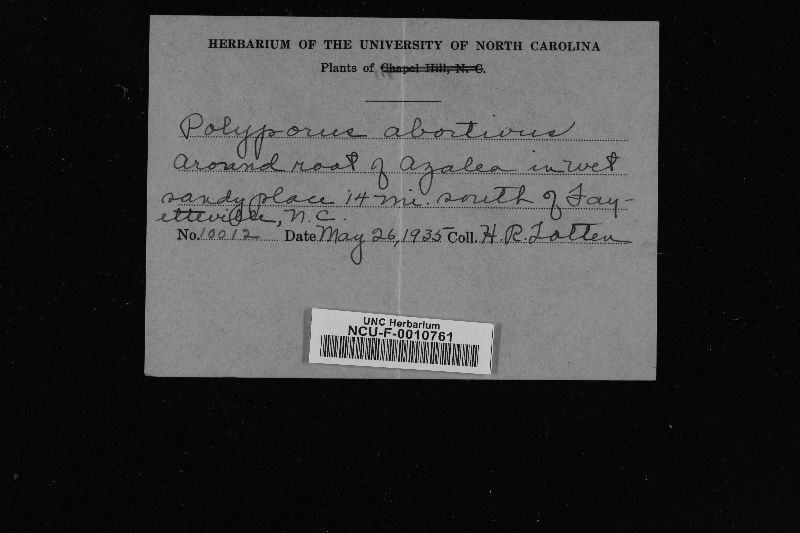 HERBARIUM OF THE UNIVERSITY OF NORTH CAROLINA
Plants of Chapel Hill, N. C.
Polyporus abortivus
around root of Azalea in wet
sandy place 14 mi. south of Fay-
etteville, N.C.
No. 10012 Date May 26, 1935 Coll. H. R. Totten
UNC Herbarium
NCU-F-0010761